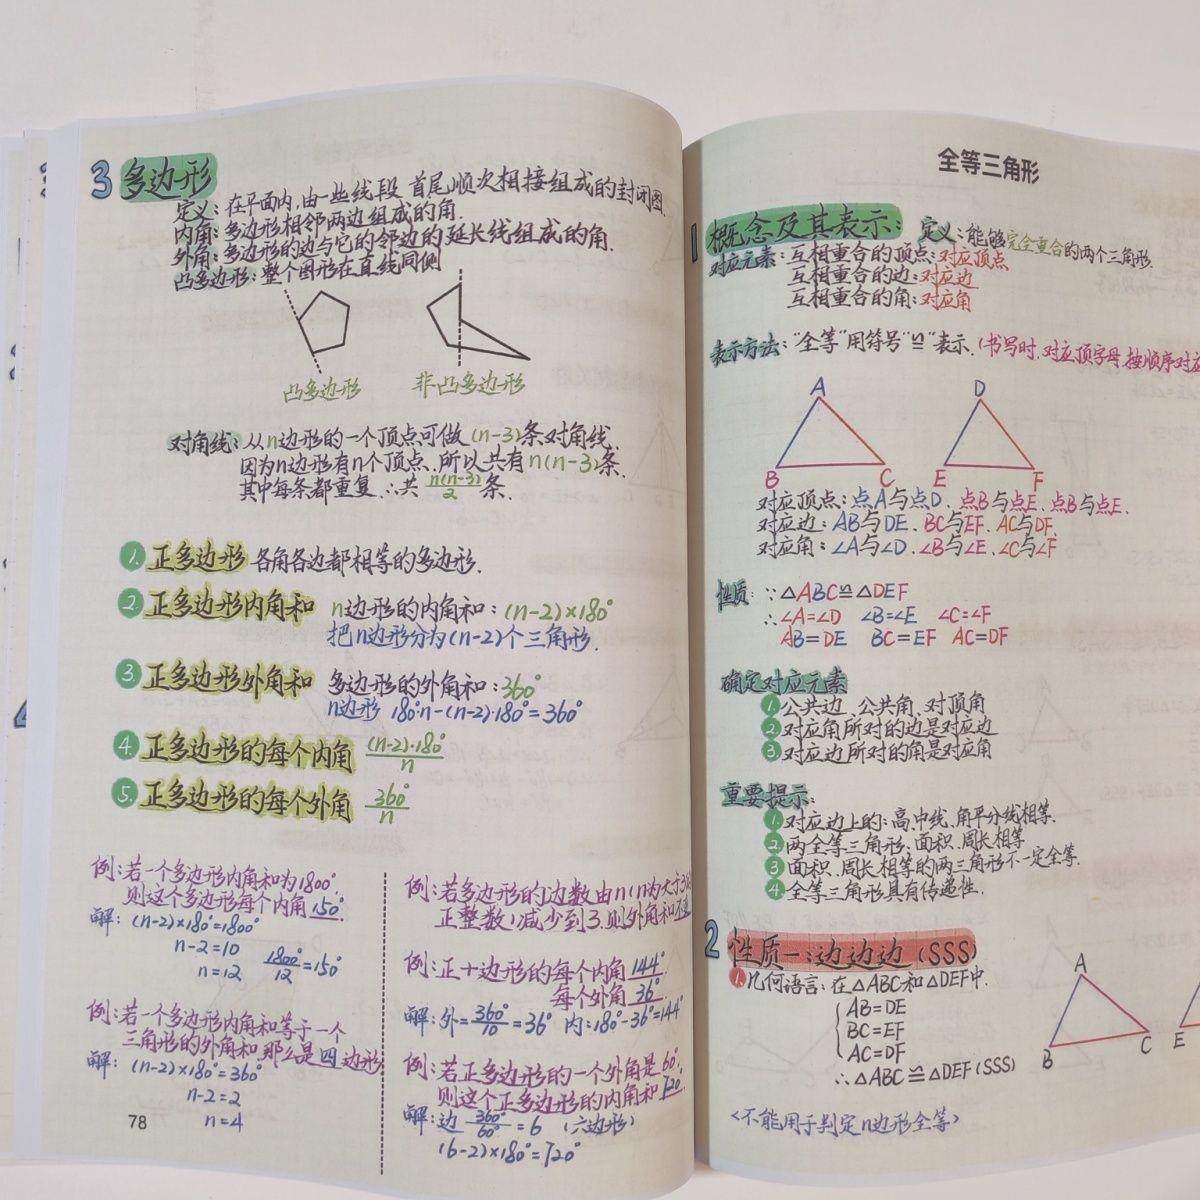 3 多边形
定义：在平面内,由一些线段 首尾顺次相接组成的封闭图.
内角：多边形相邻两边组成的角.
外角：多边形的边与它的邻边的延长线组成的角.
凸多边形：整个图形在直线同侧
凸多边形 非凸多边形
对角线：从n边形的一个顶点可做(n-3)条对角线.
因为n边形有n个顶点、所以共有n(n-3)条.
其中每条都重复.∴共 n(n-3)/2 条.
1. 正多边形 各角各边都相等的多边形.
2. 正多边形内角和 n边形的内角和：(n-2)×180°
把n边形分为(n-2)个三角形.
3. 正多边形外角和 多边形的外角和：360°
n边形 180°·n-(n-2)·180°=360°
4. 正多边形的每个内角 (n-2)·180°/n
5. 正多边形的每个外角 360°/n
例：若一个多边形内角和为1800°
则这个多边形每个内角150°.
解：(n-2)×180°=1800°
n-2=10
n=12 1800°/12=150°
例：若一个多边形内角和等于一个
三角形的外角和.那么是四边形
解：(n-2)×180°=360°
n-2=2
n=4
78
例：若多边形的边数由n(n为大于3的
正整数)减少到3.则外角和不变
例：正十边形的每个内角144°
每个外角36°
解：外=360°/10=36° 内:180°-36°=144°
例：若正多边形的一个外角是60°.
则这个正多边形的内角和720°.
解：边 360°/60°=6 (六边形)
(6-2)×180°=720°
全等三角形
1 概念及其表示：定义：能够完全重合的两个三角形.
对应元素：互相重合的顶点：对应顶点
互相重合的边：对应边
互相重合的角：对应角
表示方法："全等"用符号"≌"表示.(书写时,对应顶字母按顺序对应
A D
B C E F
对应顶点：点A与点D、点B与点E、点B与点E.
对应边：AB与DE、BC与EF、AC与DF.
对应角：∠A与∠D、∠B与∠E、∠C与∠F
性质：∵△ABC≌△DEF
∴∠A=∠D ∠B=∠E ∠C=∠F
AB=DE BC=EF AC=DF
确定对应元素
1 公共边、公共角、对顶角
2 对应角所对的边是对应边
3 对应边所对的角是对应角
重要提示：
1. 对应边上的：高、中线、角平分线相等.
2. 两全等三角形、面积、周长相等
3 面积、周长相等的两三角形不一定全等.
4 全等三角形具有传递性.
2 性质一：边边边(SSS)
1. 几何语言：在△ABC和△DEF中.
AB=DE
BC=EF
AC=DF
∴△ABC≌△DEF(SSS)
A
B C E
<不能用于判定n边形全等>